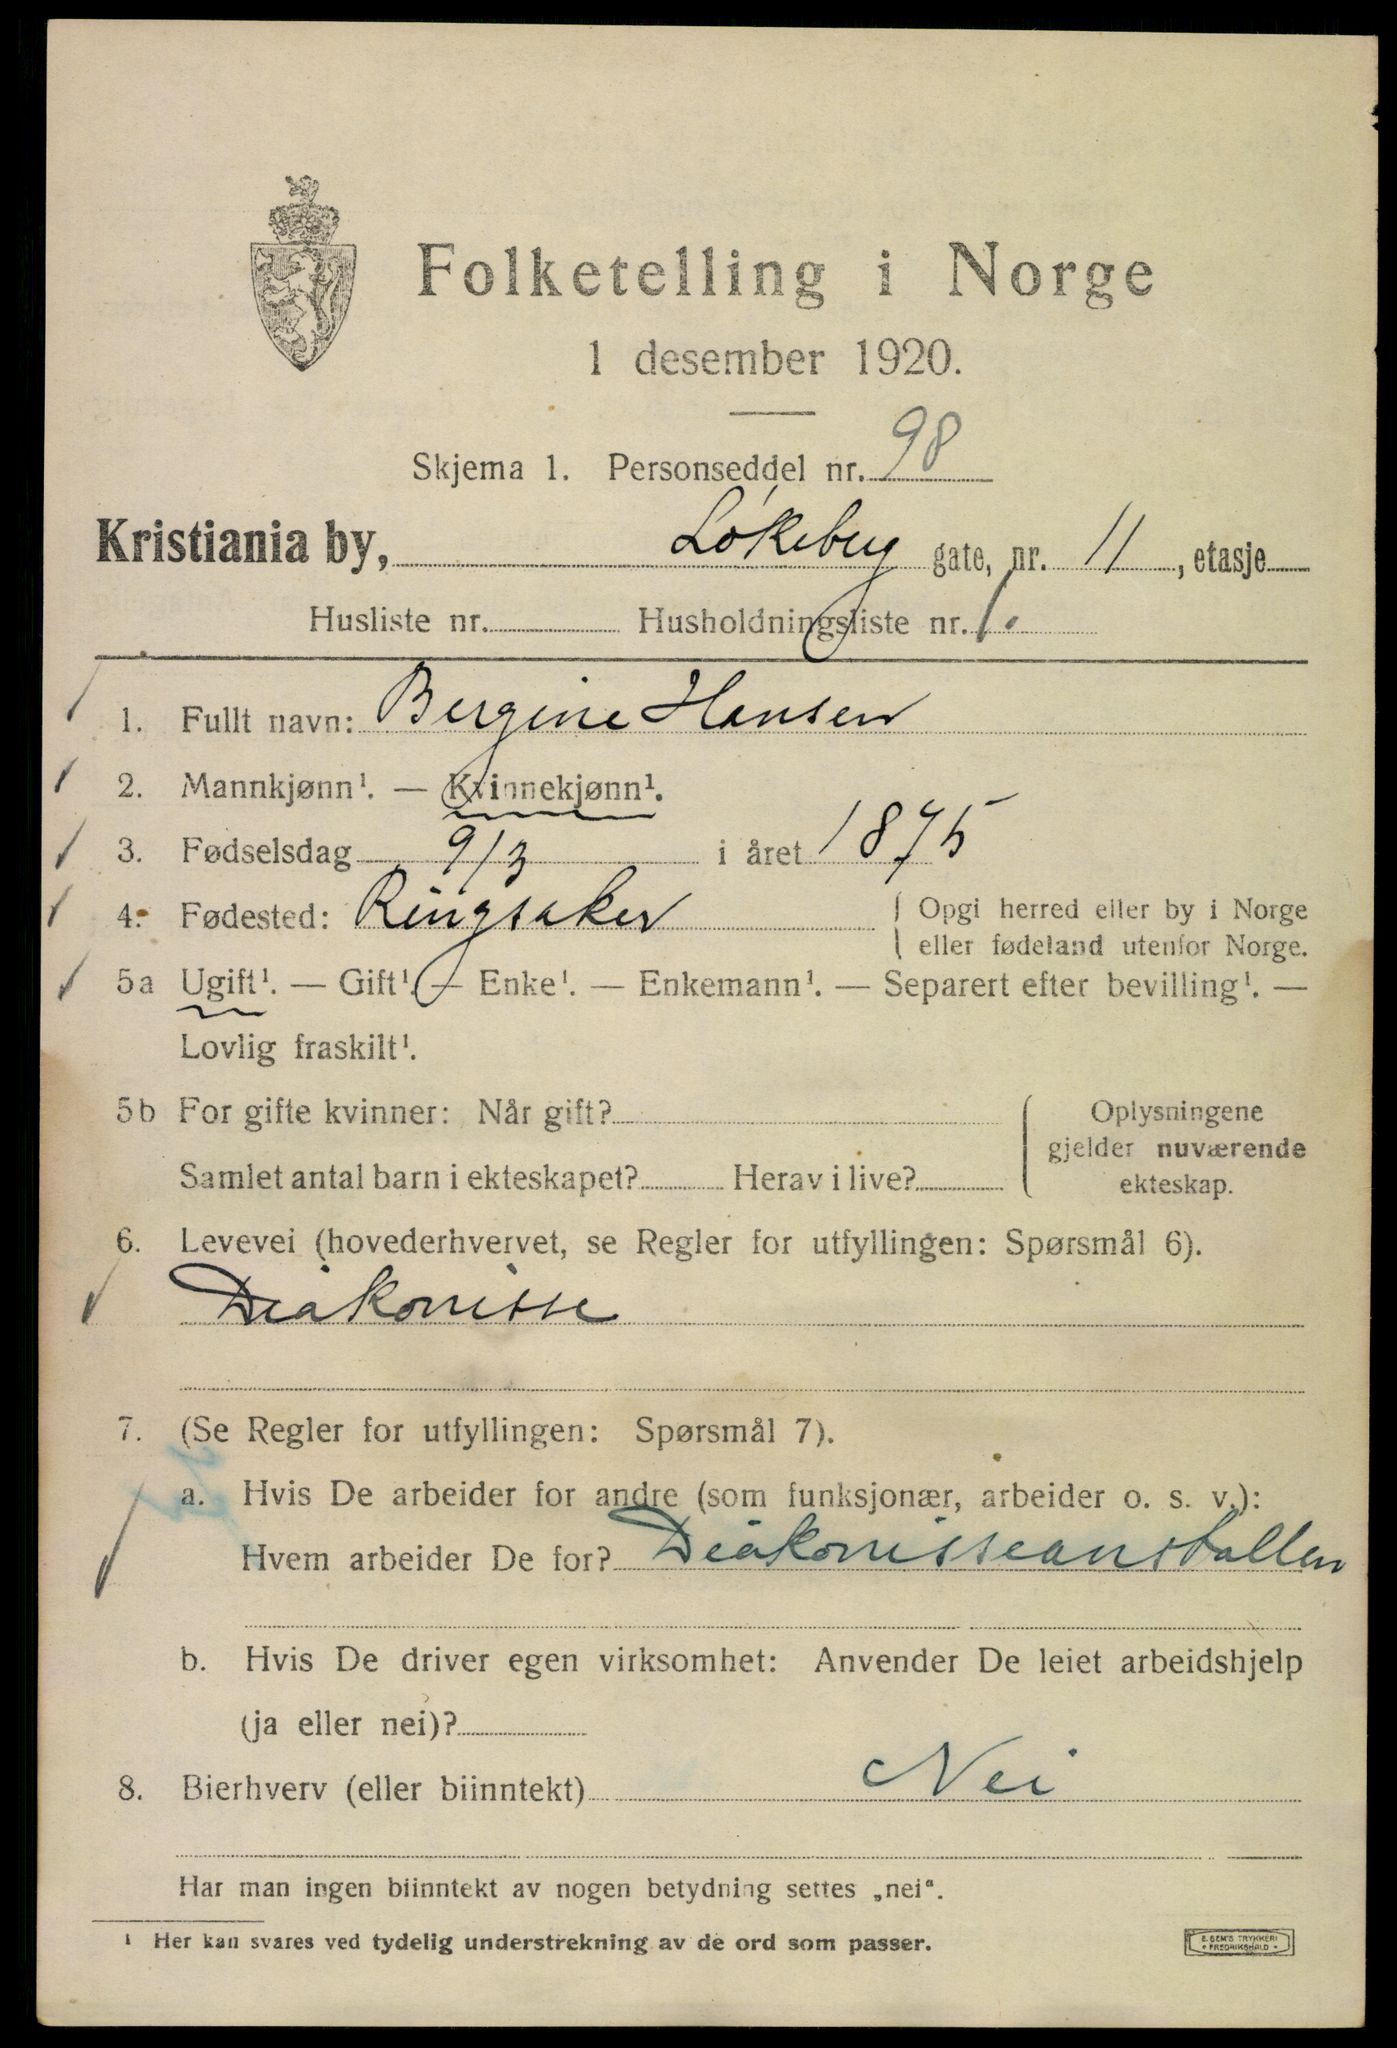 Folketelling i Norge
1 desember 1920.
Skjema 1. Personseddel nr. 98
Kristiania by, Løkeberg gate, nr. 11, etasje
Husliste nr. Husholdningsliste nr. 1.
1. Fullt navn: Bergine Hansen
2. Mannkjønn¹. — Kvinnekjønn¹.
3. Fødselsdag 9/3 i året 1875
4. Fødested: Ringsaker Opgi herred eller by i Norge
eller fødeland utenfor Norge.
5a Ugift¹. — Gift¹. — Enke¹. — Enkemann¹. — Separert efter bevilling¹. —
Lovlig fraskilt¹.
5b For gifte kvinner: Når gift?
Samlet antal barn i ekteskapet? Herav i live?
Oplysningene
gjelder nuværende
ekteskap.
6. Levevei (hovederhvervet, se Regler for utfyllingen: Spørsmål 6).
Diakonisse
7. (Se Regler for utfyllingen: Spørsmål 7).
a. Hvis De arbeider for andre (som funksjonær, arbeider o. s. v.):
Hvem arbeider De for? Diakonisseanstalten
b. Hvis De driver egen virksomhet: Anvender De leiet arbeidshjelp
(ja eller nei)?
8. Bierhverv (eller biinntekt) Nei
Har man ingen biinntekt av nogen betydning settes „nei“.
¹ Her kan svares ved tydelig understrekning av de ord som passer.
E. SEM'S TRYKKERI
• FREDRIKSHALD •